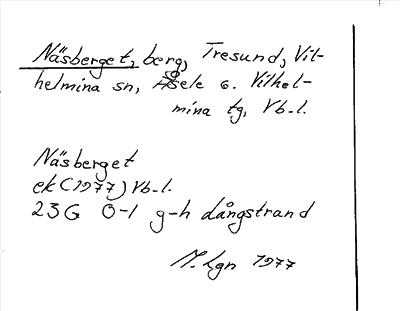 Näsberget, berg, Tresund, Vil-
helmina sn, Åsele o. Vilhel-
mina tg, Vb-l.
Näsberget
ek (1977) Vb-l.
23G 0-1 g-h Långstrand
M. Lgn 1977